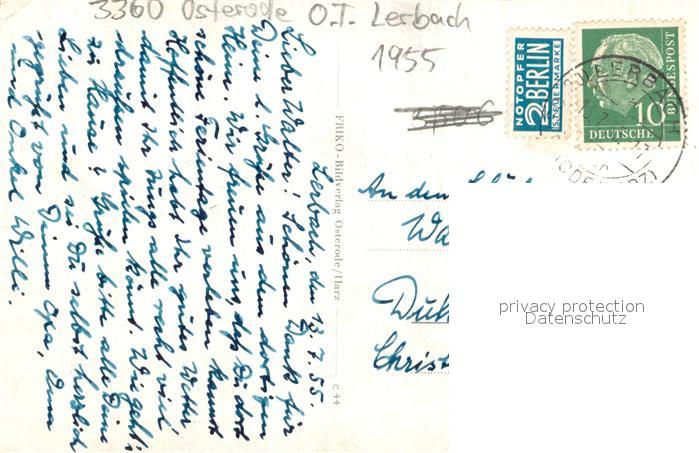 3360 Osterode O.T. Lerbach
1955
NOTOPFER
2 BERLIN
STEUERMARKE
DEUTSCHE
BUNDESPOST
10
LERBACH
Lerbach, den 13.7.55.
Lieber Walter! Schönen Dank für
Deine l. Grüße aus dem dortigen
Heim. Wir freuen uns, daß Du dort
schöne Ferientage verleben kannst
Hoffentlich habt Ihr gutes Wetter
damit Ihr Jungs alle recht viel
draußen spielen könnt. Wie geht's
zu Hause? Grüße bitte alle Deine
Lieben und sei Du selbst herzlich
gegrüßt von Deinem Opa, Oma
und Onkel Willi.
FRIKO-Bildverlag Osterode/Harz
C 44
An den
Wa
Christ
privacy protection
Datenschutz